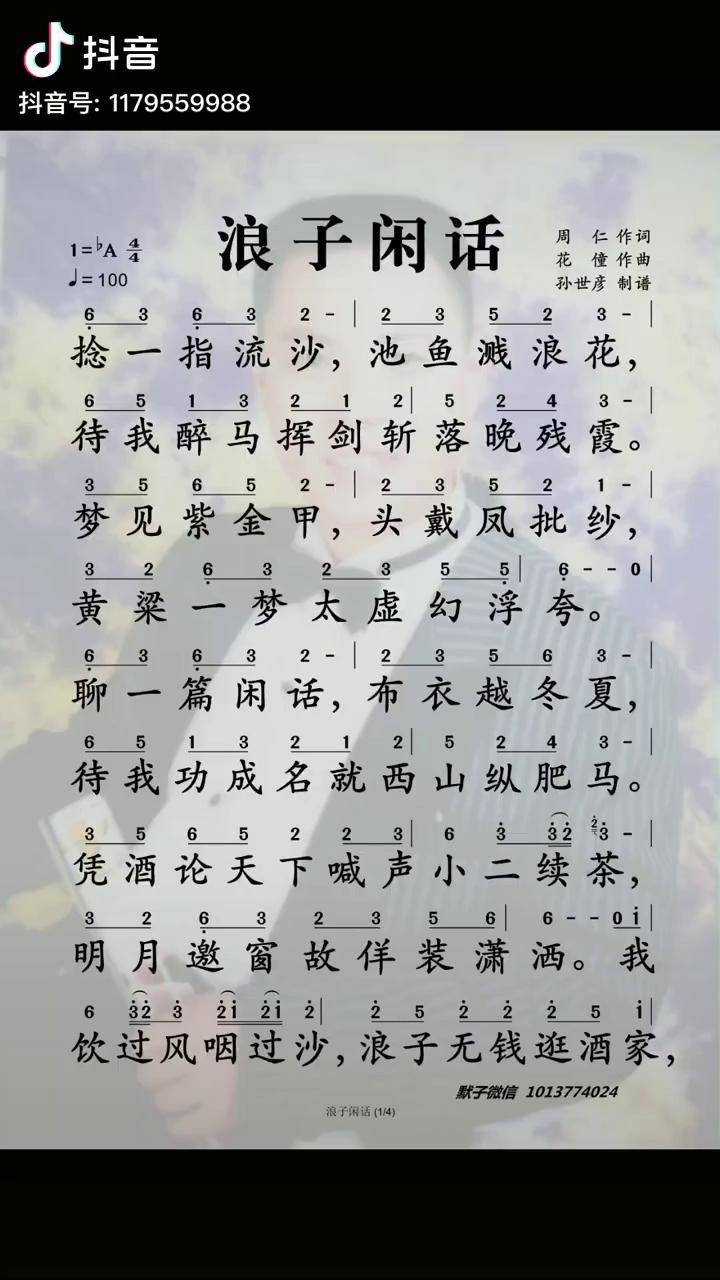 抖音
抖音号: 1179559988
浪子闲话
1=♭A 4/4
♩=100
周 仁 作词
花 僮 作曲
孙世彦 制谱
6̣ 3 6̣ 3 2 - | 2 3 5 2 3 - |
捻一指流沙，池鱼溅浪花，
6 5 1 3 2 1 2 | 5 2 4 3 - |
待我醉马挥剑斩落晚残霞。
3 5 6 5 2 - | 2 3 5 2 1 - |
梦见紫金甲，头戴凤批纱，
3 2 6̣ 3 2 3 5 5̣ | 6̣ - - 0 |
黄粱一梦太虚幻浮夸。
6̣ 3 6̣ 3 2 - | 2 3 5 6 3 - |
聊一篇闲话，布衣越冬夏，
6 5 1 3 2 1 2 | 5 2 4 3 - |
待我功成名就西山纵肥马。
3 5 6 5 2 2 3 | 6 3̇ 3̇2̇ 2̇3̇ - |
凭酒论天下喊声小二续茶，
3 2 6̣ 3 2 3 5 6 | 6 - - 0 1̇ |
明月邀窗故佯装潇洒。我
6 3̇2̇ 3̇ 2̇1̇ 2̇1̇ 2̇ | 2̇ 5 2̇ 2̇ 2̇ 5 1̇ |
饮过风咽过沙，浪子无钱逛酒家，
默子微信 1013774024
浪子闲话 (1/4)